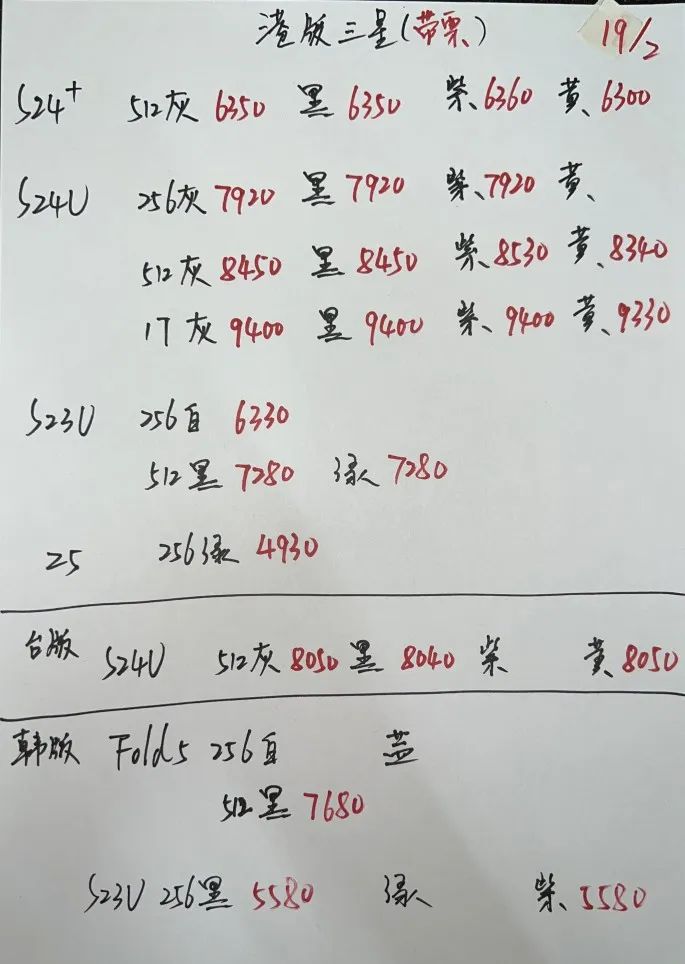 港版三星(带票) 19/2
S24+ 512灰 6350 黑 6350 紫、6360 黄、6300
S24U 256灰 7920 黑 7920 紫、7920 黄、
512灰 8450 黑 8450 紫、8530 黄、8340
1T 灰 9400 黑 9400 紫、9400 黄、9330
S23U 256白 6330
512黑 7280 绿 7280
Z5 256绿 4930
台版 S24U 512灰 8050 黑 8040 紫 黄 8050
韩版 Fold5 256白 蓝
512黑 7680
S23U 256黑 5580 绿 紫、5580